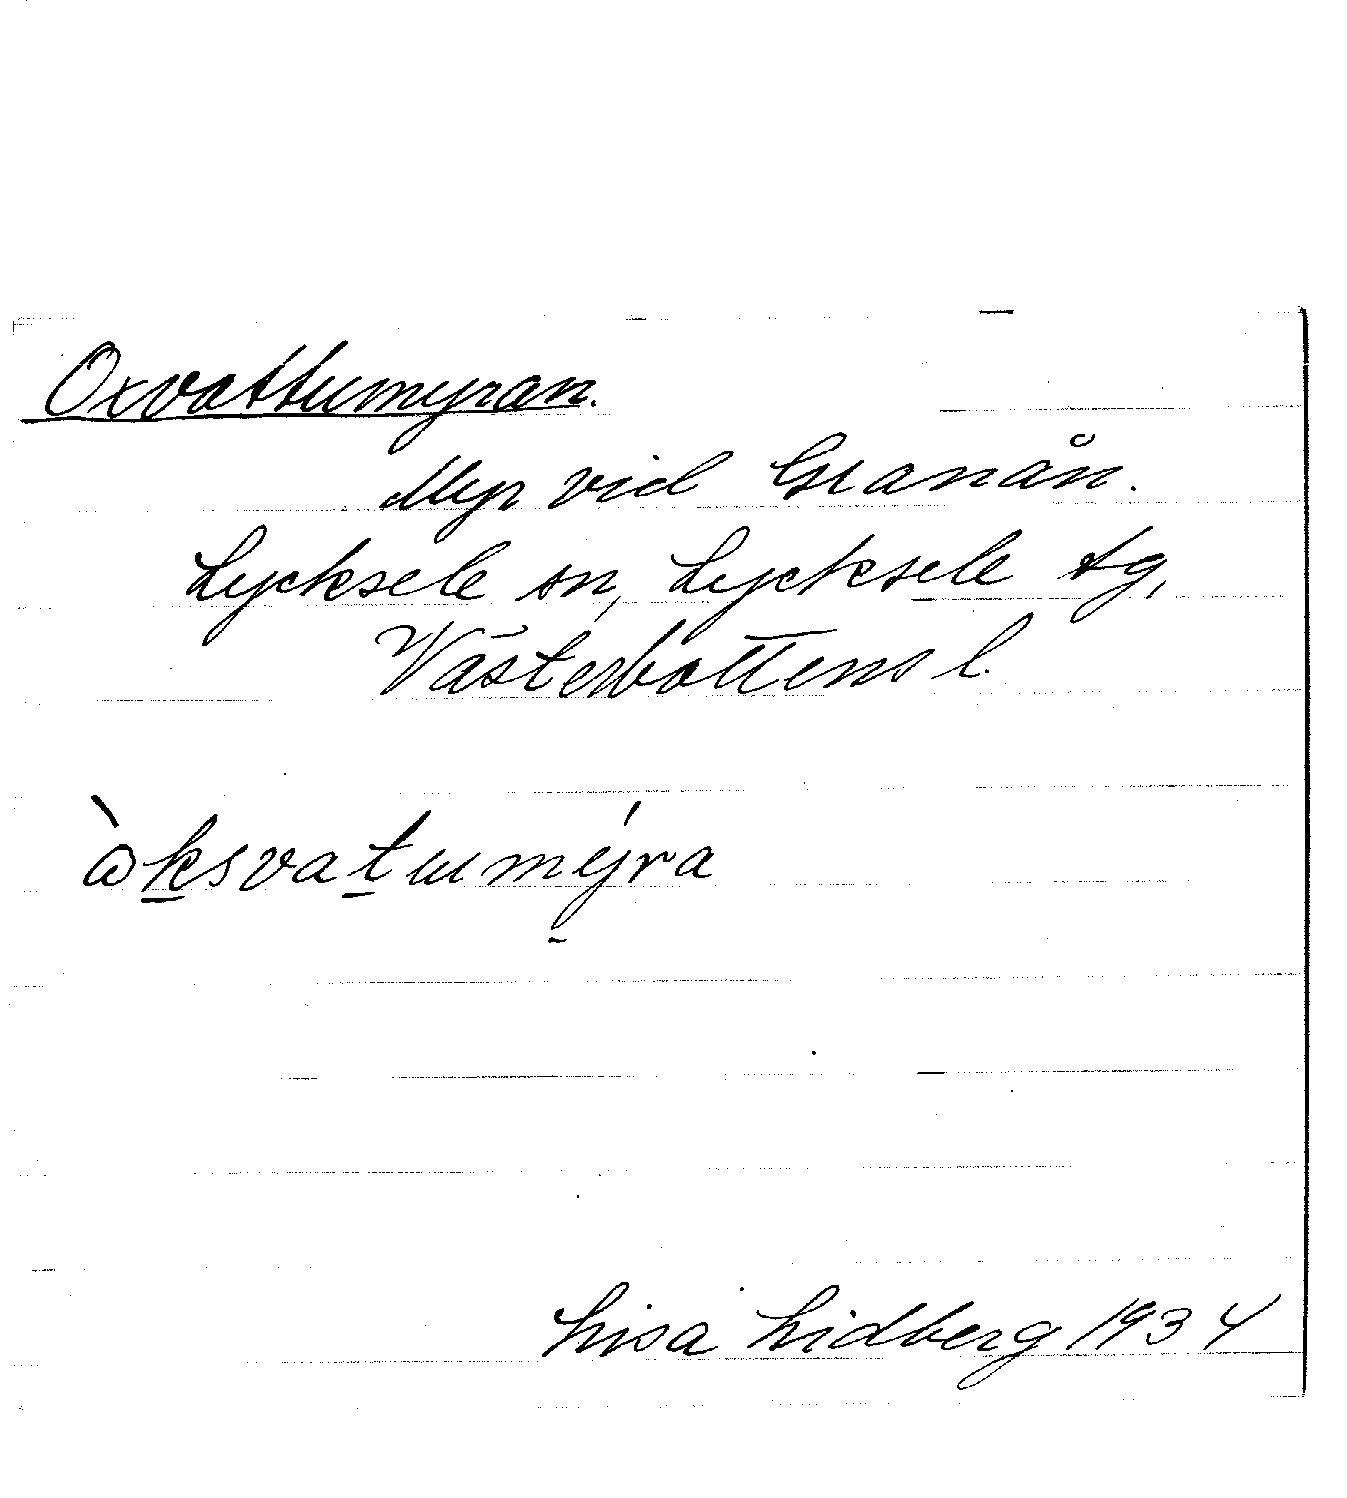 Oxvattumyran.
Myr vid Granån.
Lycksele sn, Lycksele tg,
Västerbottens l.
ὼk̲svat̲umý̲ra
Lisa Lidberg 1934